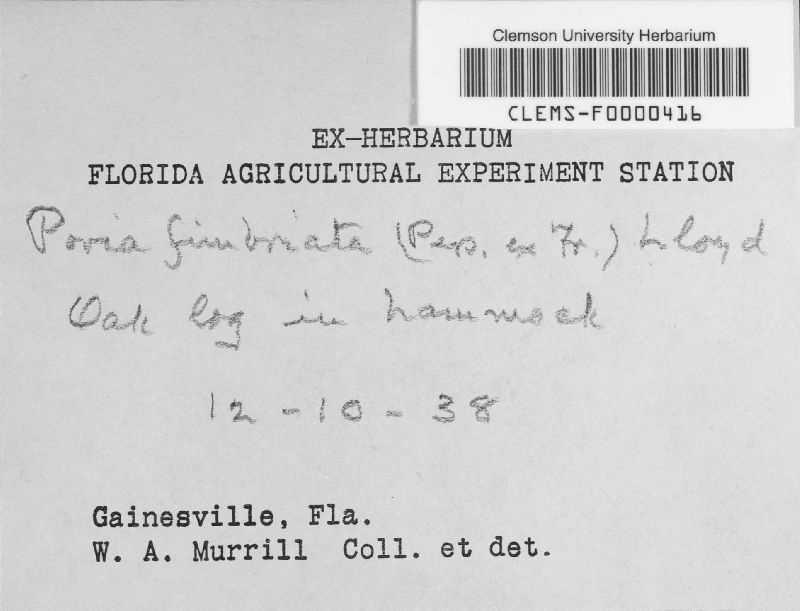 Clemson University Herbarium
CLEMS-F0000416
EX-HERBARIUM
FLORIDA AGRICULTURAL EXPERIMENT STATION
Poria fimbriata (Pers. ex Fr.) Lloyd
Oak log in hammock
12-10-38
Gainesville, Fla.
W. A. Murrill Coll. et det.